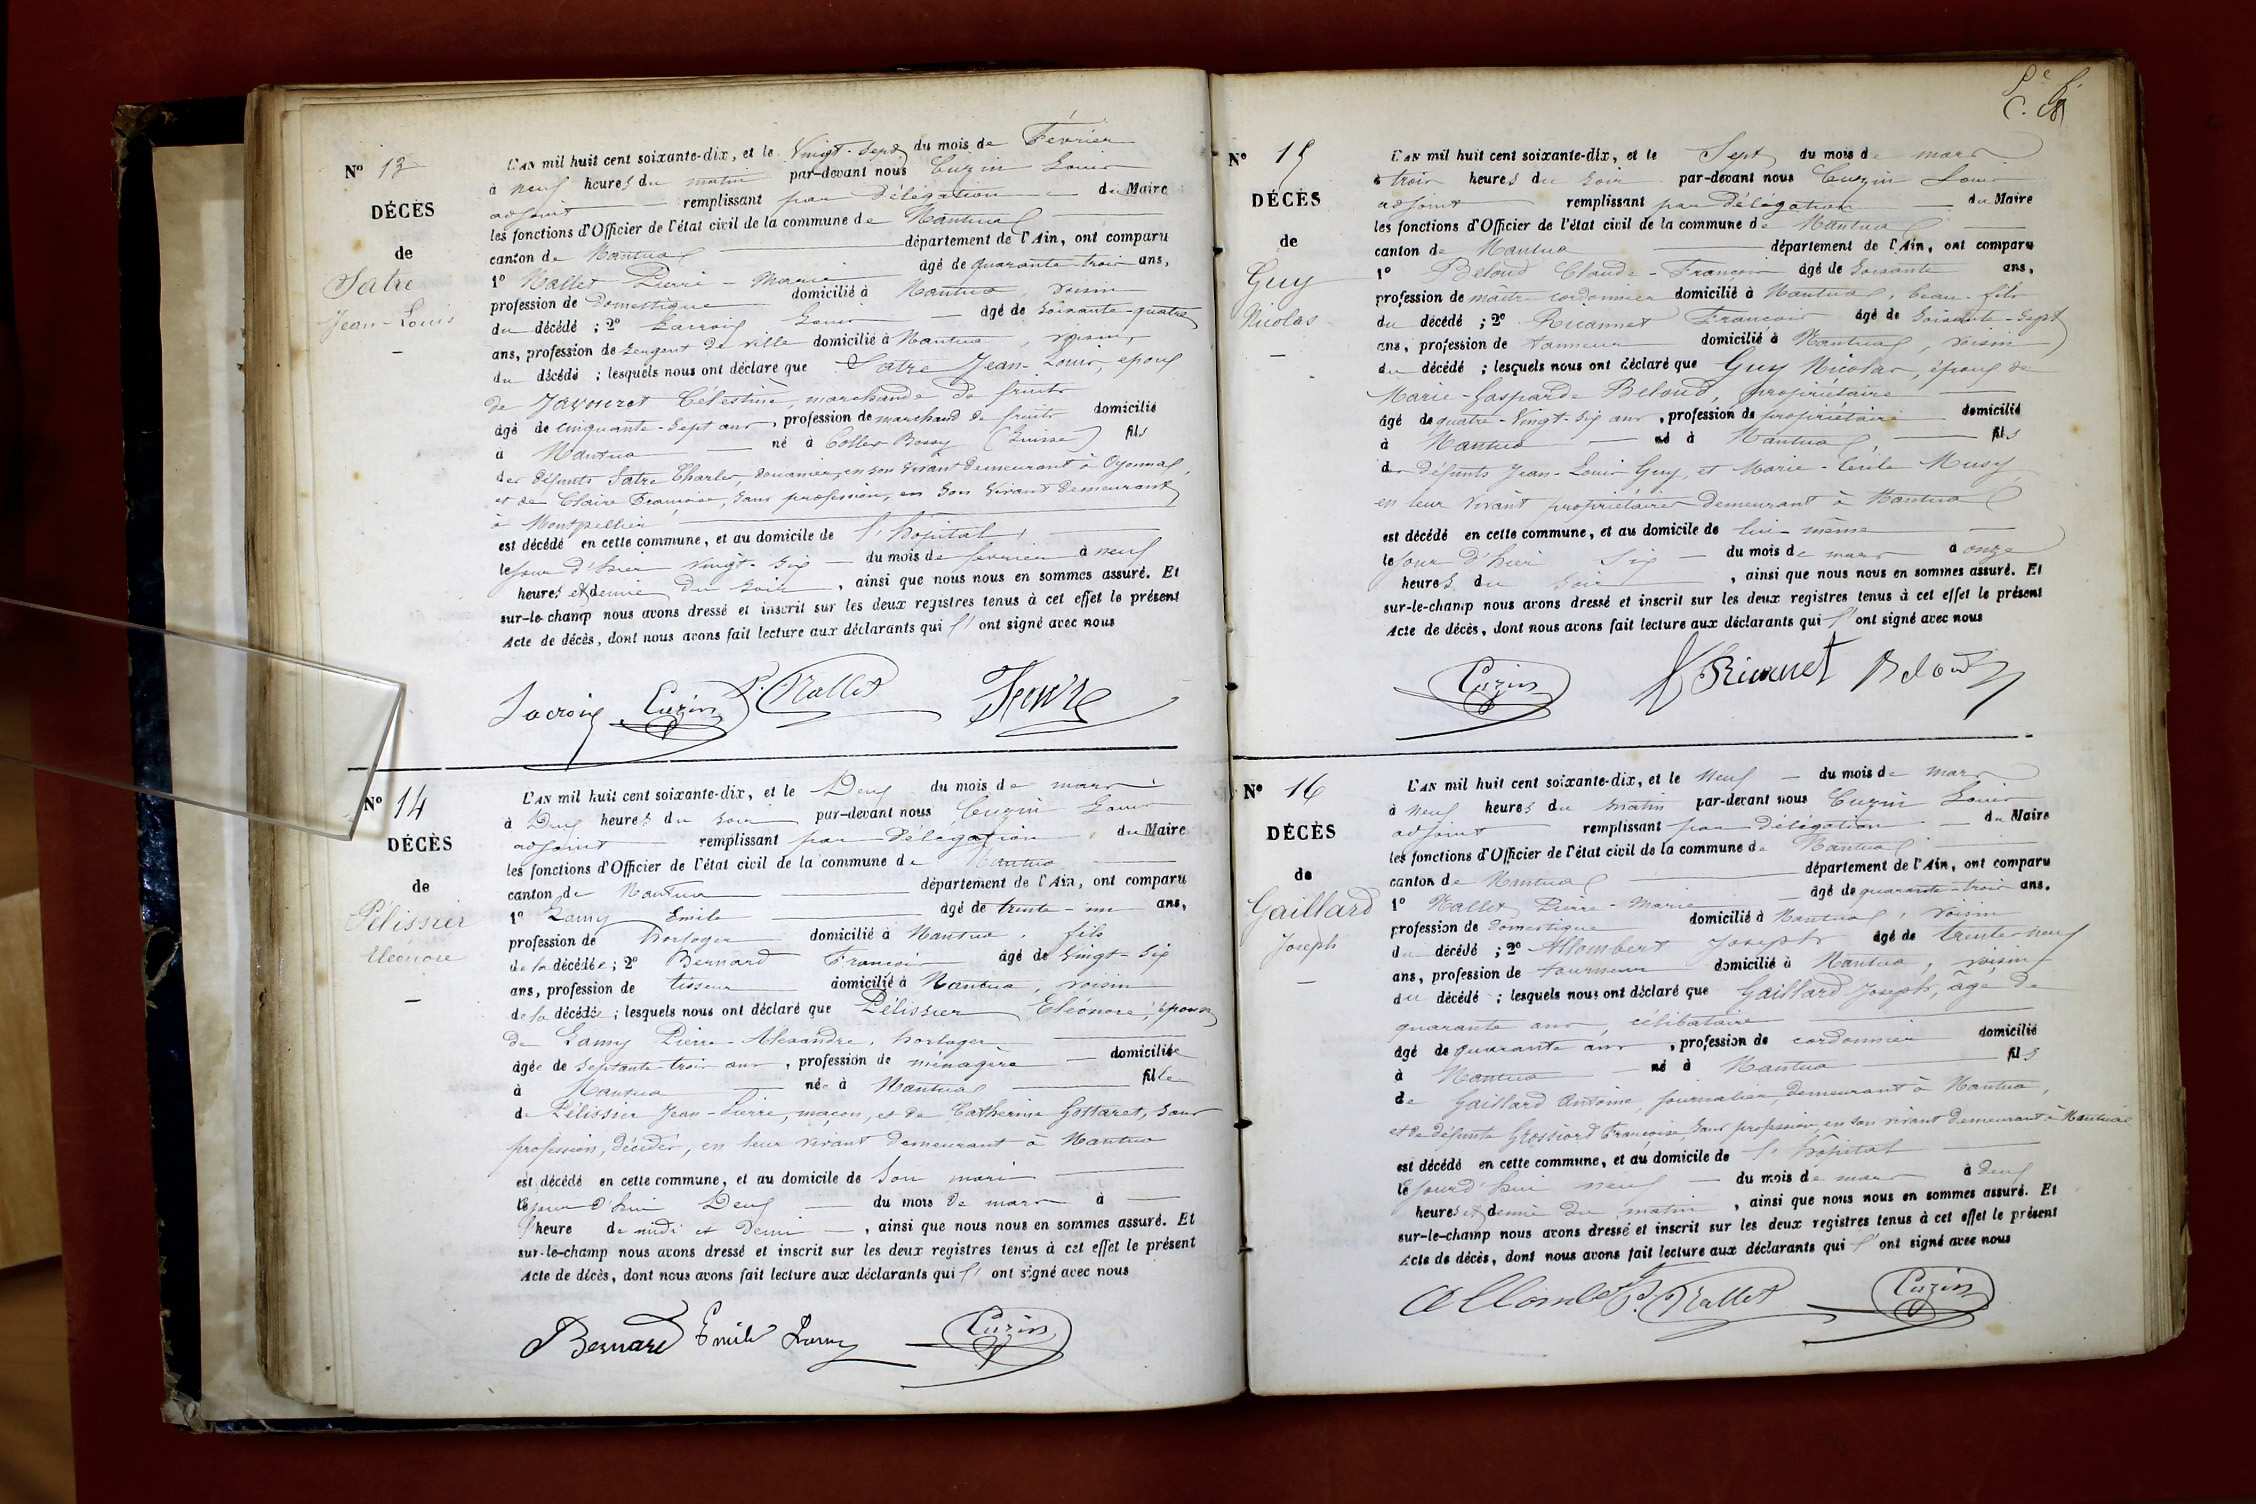 Nº 13
DÉCÈS
de
Satre
Jean-Louis
L'AN mil huit cent soixante-dix, et le Vingt-Sept du mois de Février
à neuf heures du matin par-devant nous Cuzin Louis
adjoint remplissant par délégation du Maire
les fonctions d'Officier de l'état civil de la commune de Nantua
canton de Nantua département de l'Ain, ont comparu
1º Nallet Pierre-Marie âgé de quarante-trois ans,
profession de domestique domicilié à Nantua, voisin
du décédé ; 2º Lacroix Louis âgé de soixante-quatre
ans, profession de sergent de ville domicilié à Nantua, voisin,
du décédé ; lesquels nous ont déclaré que Satre Jean-Louis, époux
de Javouret Célestine, marchande de fruits
âgé de cinquante-sept ans, profession de marchand de fruits domicilié
à Nantua né à Collex-Bossy (Suisse) fils
des défunts Satre Charles, douanier, en son vivant demeurant à Oyonnax,
et de Claire Françoise, sans profession, en son vivant demeurant
à Montpellier
est décédé en cette commune, et au domicile de l'hôpital,
le jour d'hier vingt-six du mois de février à neuf
heures et demie du soir, ainsi que nous nous en sommes assuré. Et
sur-le-champ nous avons dressé et inscrit sur les deux registres tenus à cet effet le présent
Acte de décès, dont nous avons fait lecture aux déclarants qui l' ont signé avec nous
Lacroix Cuzin P. Nallet
Nº 14
DÉCÈS
de
Pélissier
Eléonore
L'AN mil huit cent soixante-dix, et le Deux du mois de mars
à Deux heures du soir par-devant nous Cuzin Louis
adjoint remplissant par Délégation du Maire
les fonctions d'Officier de l'état civil de la commune de Nantua
canton de Nantua département de l'Ain, ont comparu
1º Lamy Emile âgé de trente-un ans,
profession de horloger domicilié à Nantua, fils
de la décédée ; 2º Bernard François âgé de Vingt-six
ans, profession de tisseur domicilié à Nantua, voisin
de la décédée ; lesquels nous ont déclaré que Pélissier Eléonore, épouse
de Lamy Pierre-Alexandre, horloger
âgée de septante-trois ans, profession de ménagère domiciliée
à Nantua née à Nantua fille
de Pélissier Jean-Pierre, maçon, et de Catherine Gottaret, sans
profession, décédés, en leur vivant demeurant à Nantua
est décédé en cette commune, et au domicile de son mari
le jour d'hui Deux du mois de mars à
l'heure de midi et demie, ainsi que nous nous en sommes assuré. Et
sur-le-champ nous avons dressé et inscrit sur les deux registres tenus à cet effet le présent
Acte de décès, dont nous avons fait lecture aux déclarants qui l' ont signé avec nous
Bernard Emile Lamy Cuzin
Nº 15
DÉCÈS
de
Guy
Nicolas
L'AN mil huit cent soixante-dix, et le Sept du mois de mars
à trois heures du soir par-devant nous Cuzin Louis
adjoint remplissant par Délégation du Maire
les fonctions d'Officier de l'état civil de la commune de Nantua
canton de Nantua département de l'Ain, ont comparu
1º Beloud Claude-François âgé de soixante ans,
profession de maître cordonnier domicilié à Nantua, beau-fils
du décédé ; 2º Ricannet François âgé de soixante-sept
ans, profession de tanneur domicilié à Nantua, voisin
du décédé ; lesquels nous ont déclaré que Guy Nicolas, époux de
Marie-Gasparde Beloud, propriétaire
âgé de quatre-vingt-six ans, profession de propriétaire domicilié
à Nantua né à Nantua, fils
des défunts Jean-Louis Guy, et Marie-Cécile Musy
en leur vivant propriétaires demeurant à Nantua
est décédé en cette commune, et au domicile de lui-même
le jour d'hier Six du mois de mars à onze
heures du soir, ainsi que nous nous en sommes assuré. Et
sur-le-champ nous avons dressé et inscrit sur les deux registres tenus à cet effet le présent
Acte de décès, dont nous avons fait lecture aux déclarants qui l' ont signé avec nous
Cuzin Ricanet Beloud
Nº 16
DÉCÈS
de
Gaillard
Joseph
L'AN mil huit cent soixante-dix, et le Neuf du mois de mars
à neuf heures du matin par-devant nous Cuzin Louis
adjoint remplissant par délégation du Maire
les fonctions d'Officier de l'état civil de la commune de Nantua
canton de Nantua département de l'Ain, ont comparu
1º Nallet Pierre-Marie âgé de quarante-trois ans.
profession de domestique domicilié à Nantua, voisin
du décédé ; 2º Allombert Joseph âgé de trente-neuf
ans, profession de tourneur domicilié à Nantua, voisin
du décédé ; lesquels nous ont déclaré que Gaillard Joseph, âgé de
quarante ans, célibataire
âgé de quarante ans, profession de cordonnier domicilié
à Nantua né à Nantua fils
de Gaillard Antoine, journalier, demeurant à Nantua,
et de défunte Grossiord Françoise, sans profession, en son vivant demeurant à Nantua
est décédé en cette commune, et au domicile de l'hôpital
le jourd'hui neuf du mois de mars à deux
heures et demie du matin, ainsi que nous nous en sommes assuré. Et
sur-le-champ nous avons dressé et inscrit sur les deux registres tenus à cet effet le présent
Acte de décès, dont nous avons fait lecture aux déclarants qui l' ont signé avec nous
Allombert P. Nallet Cuzin